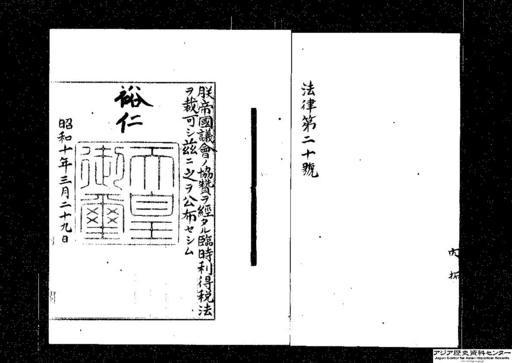 法律第二十號
朕帝國議會ノ協贊ヲ經タル臨時利得税法
ヲ裁可シ茲ニ之ヲ公布セシム
裕仁
天皇御璽
昭和十年三月二十九日
アジア歴史資料センター
Japan Center for Asian Historical Records